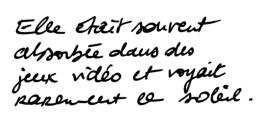 Elle était souvent
absorbée dans des
jeux vidéo et voyait
rarement le soleil.